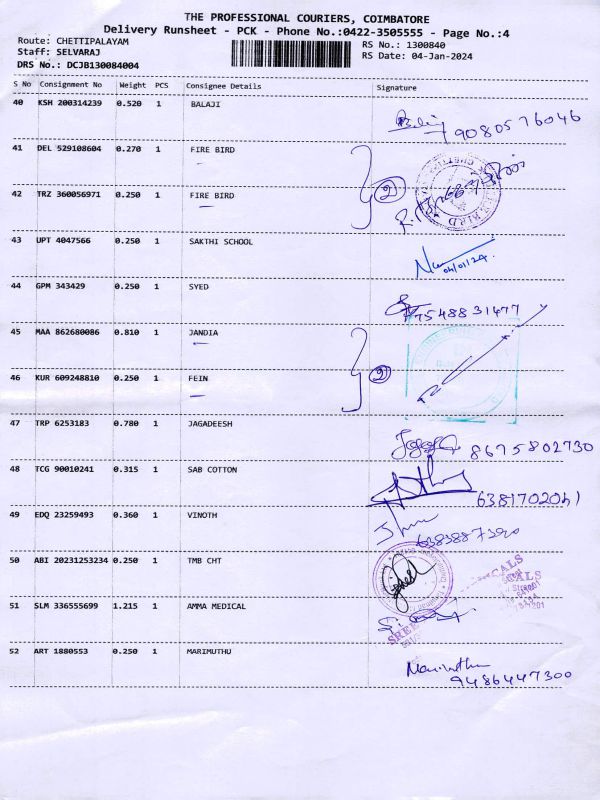 THE PROFESSIONAL COURIERS, COIMBATORE
Delivery Runsheet - PCK - Phone No.:0422-3505555 - Page No.:4
Route: CHETTIPALAYAM
Staff: SELVARAJ
DRS No.: DCJB130084004
RS No.: 1300840
RS Date: 04-Jan-2024
S No Consignment No Weight PCS Consignee Details Signature
40 KSH 200314239 0.520 1 BALAJI
9080576046
41 DEL 529108604 0.270 1 FIRE BIRD
2
42 TRZ 360056971 0.250 1 FIRE BIRD
43 UPT 4047566 0.250 1 SAKTHI SCHOOL
04/01/24.
44 GPM 343429 0.250 1 SYED
7548831477
45 MAA 862680086 0.810 1 JANDIA
2
46 KUR 609248810 0.250 1 FEIN
47 TRP 6253183 0.780 1 JAGADEESH
8675802730
48 TCG 90010241 0.315 1 SAB COTTON
6381702041
49 EDQ 23259493 0.360 1 VINOTH
6383887390
50 ABI 20231253234 0.250 1 TMB CHT
51 SLM 336555699 1.215 1 AMMA MEDICAL
52 ART 1880553 0.250 1 MARIMUTHU
Marimuthu
9486447300